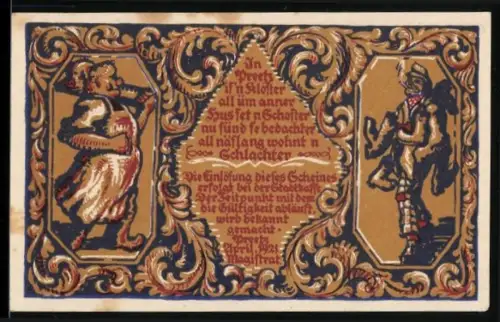 In
Preetz
is'n Kloster
all üm anner
Hus set n Schoster
nu sünd se bedachter
all näslang wohnt n
Schlachter
Die Einlösung dieses Scheines
erfolgt bei der Stadtkasse
Der Zeitpunkt mit dem
die Gültigkeit abläuft,
wird bekannt
gemacht -
Preetz
April 1921
Magistrat